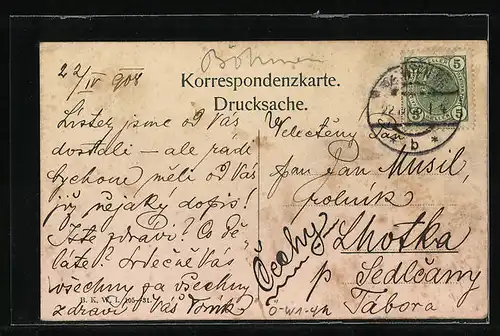 Böhmen
22/IV 908
Korrespondenzkarte.
Drucksache.
Lístek jsme od Vás
dostali – ale rádi
bychom měli od Vás
již nějaký dopis!
Jste zdrávi? Co dě-
láte? Srdečně Vás
všechny za všechny
zdraví Váš
B. K. W. I.
Velectěný Pán
pan Jan Musil,
rolník
Lhotka
p Sedlčany
Tábora
Čechy
5 5
5
b